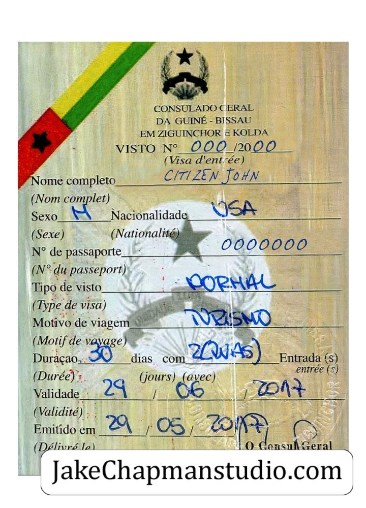 CONSULADO GERAL
DA GUINÉ - BISSAU
EM ZIGUINCHOR E KOLDA
VISTO Nº 000 /2000
(Visa d'entrée)
Nome completo CITIZEN JOHN
(Nom complet)
Sexo M Nacionalidade USA
(Sexe) (Nationalité)
Nº de passaporte 0000000
(Nº du passeport)
Tipo de visto NORMAL
(Type de visa)
Motivo de viagem TURISMO
(Motif de voyage)
Duraçao, 30 dias com 2(DUAS) Entrada (s)
(Durée) (jours) (avec) entrée (s)
Validade 29 / 06 / 2017
(Validité)
Emitido em 29 / 05 / 2017
(Délivré le) O Consul Geral
JakeChapmanstudio.com